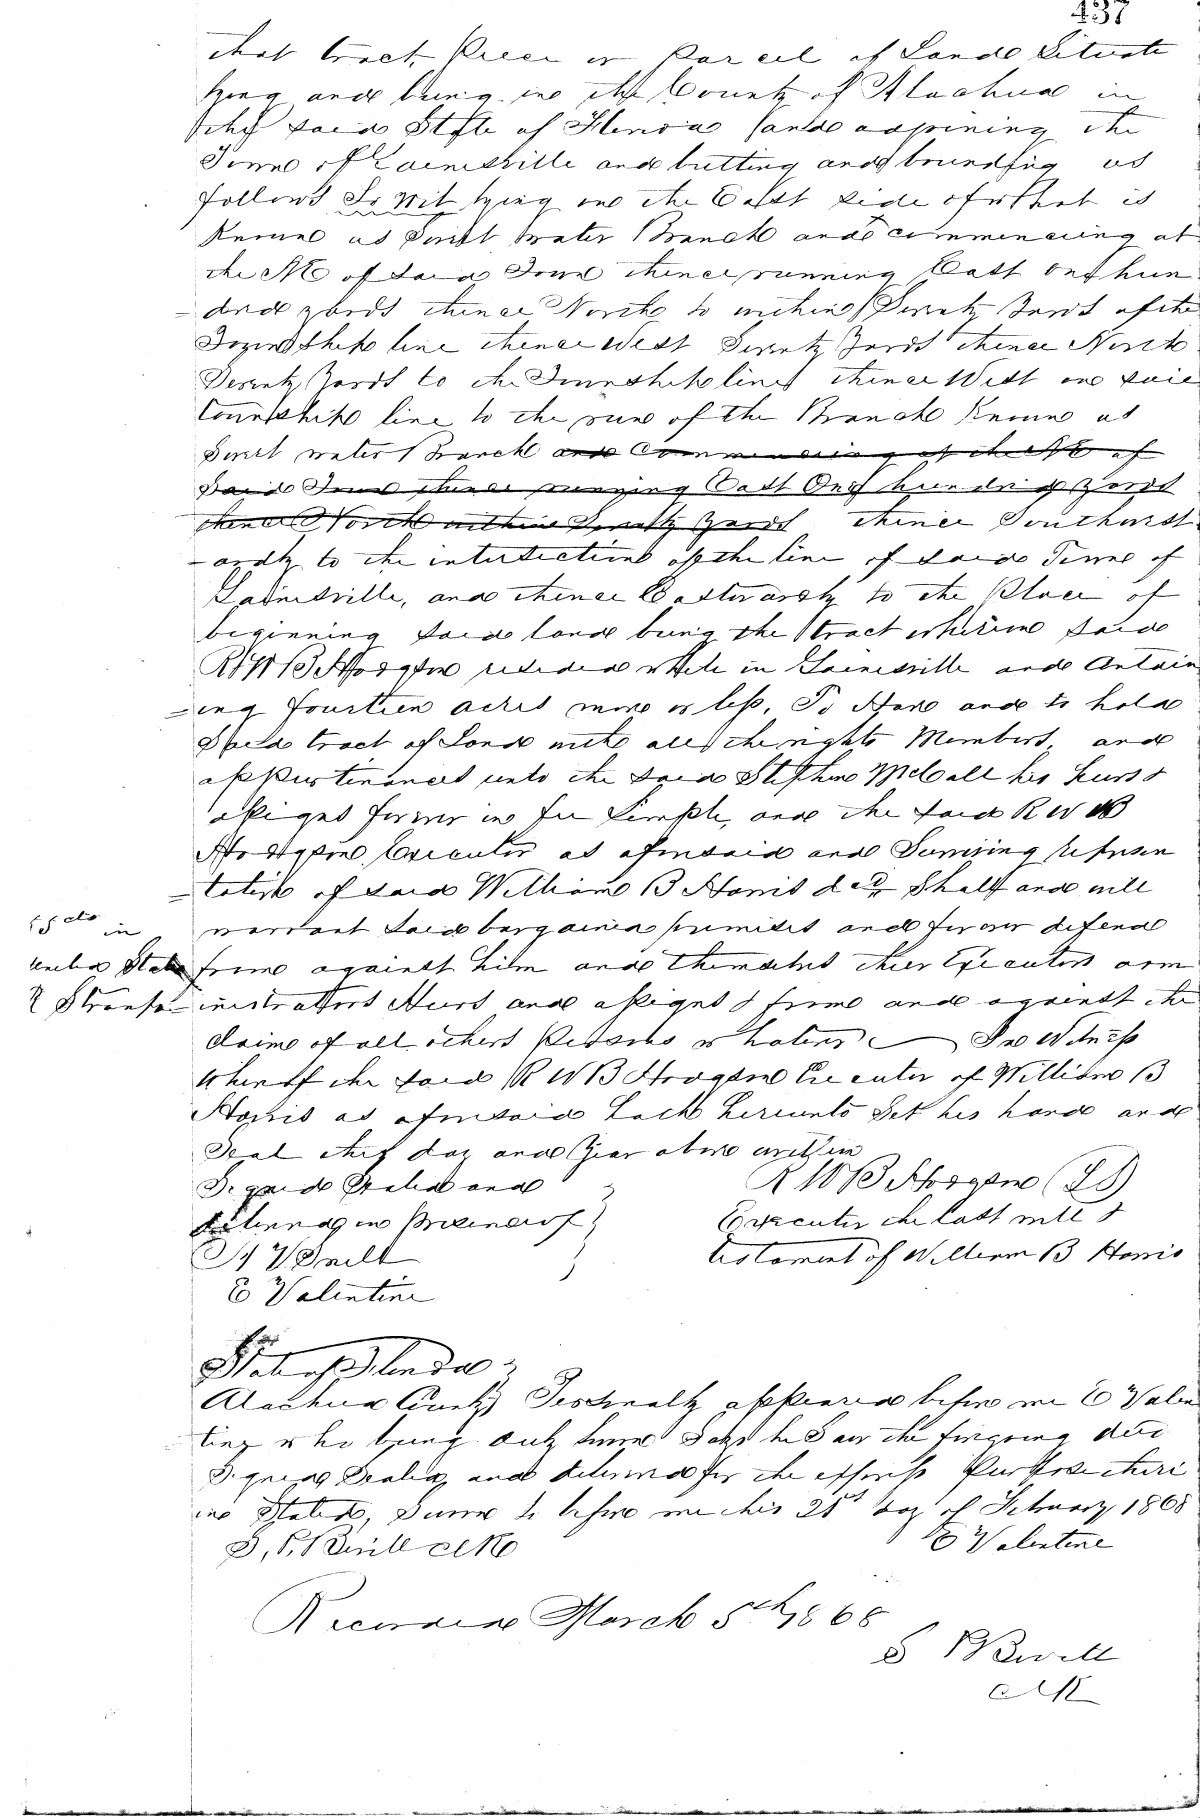 437
that tract, Piece or Parcel of Land Situate
lying and being in the County of Alachua in
the said State of Florida and adjoining the
Town of Gainesville and butting and bounding as
follows To Wit lying on the East side of what is
Known as Sweet water Branch and commencing at
the NE of said Town thence running East One hun
dred yards thence North to within Seventy Yards of the
Township line thence West Seventy Yards thence North
Seventy Yards to the Township line thence West on said
Township line to the run of the Branch Known as
Sweet water Branch and Commencing at the NE of
said Town thence running East One hundred yards
thence North within Seventy yards thence Southwest
-ardly to the intersection of the line of said Town of
Gainesville, and thence Eastwardly to the Place of
beginning said land being the tract whereon said
RWB Hodgson resided while in Gainesville and Contain
=ing fourteen acres more or less, To Have and to hold
said tract of Land with all the rights Members, and
appurtinances unto the said Stephen McCall his heirs &
assigns forever in fee Simple, and the said R W B
Hodgson Executor as aforesaid and Surviving represen
=tative of said William B Harris decd Shall and will
warrant said bargained premises and forever defend
55 cts in
United States
R Stamps
from against him and themselves their Executors adm
inistrators Heirs and assigns & from and against the
claim of all others Persons whatever In Witness
Whereof the said R W B Hodgson Executor of William B
Harris as aforesaid hath hereunto Set his hand and
Seal this day and Year above written
Signed Sealed and
delivered in Presence of
E Valentine
R W B Hodgson (LS)
Executor the last will &
testament of William B Harris
State of Florida
Alachua County Personally appeared before me E Valen
tine who being duly sworn Says he Saw the foregoing deed
Signed Sealed and delivered for the express Purpose there
in Stated, Sworn to before me this 21st day of February 1868
S. P. Bevill Clk
E Valentine
Recorded March 5th 1868
S P Bevill
Clk